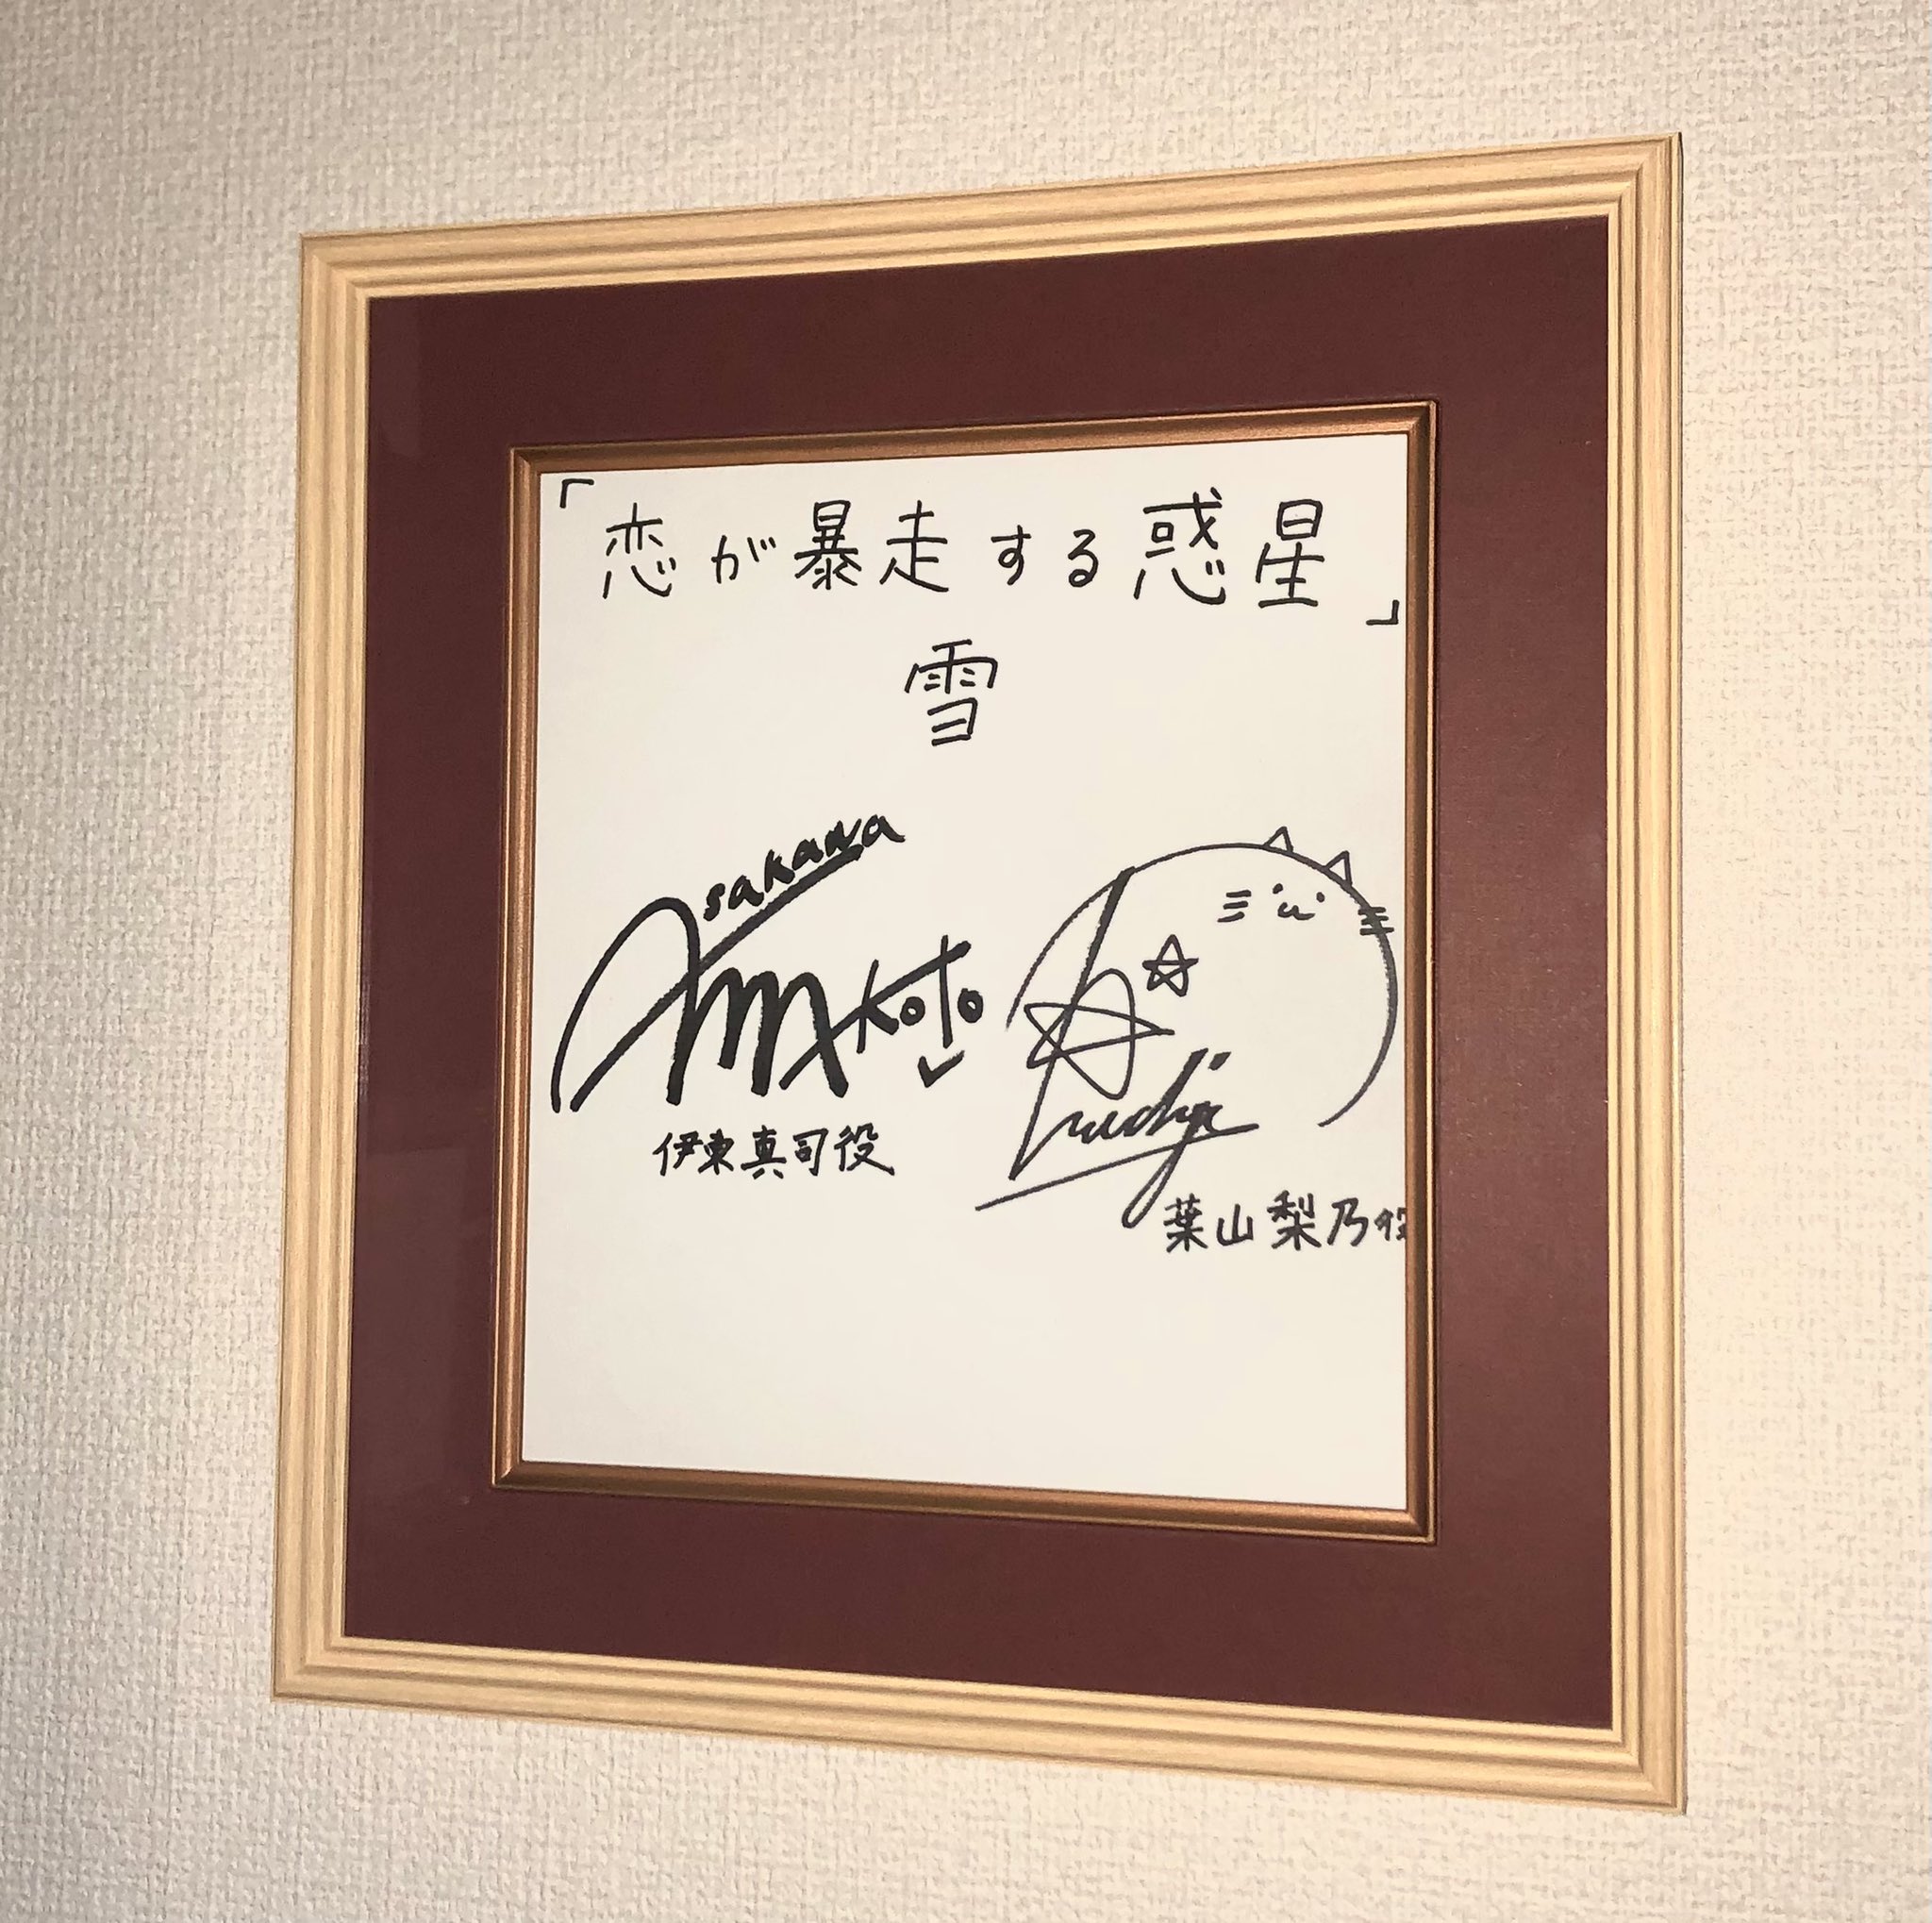 「恋が暴走する惑星」
雪
Asakawa
Makoto
伊東真司役
葉山梨乃役